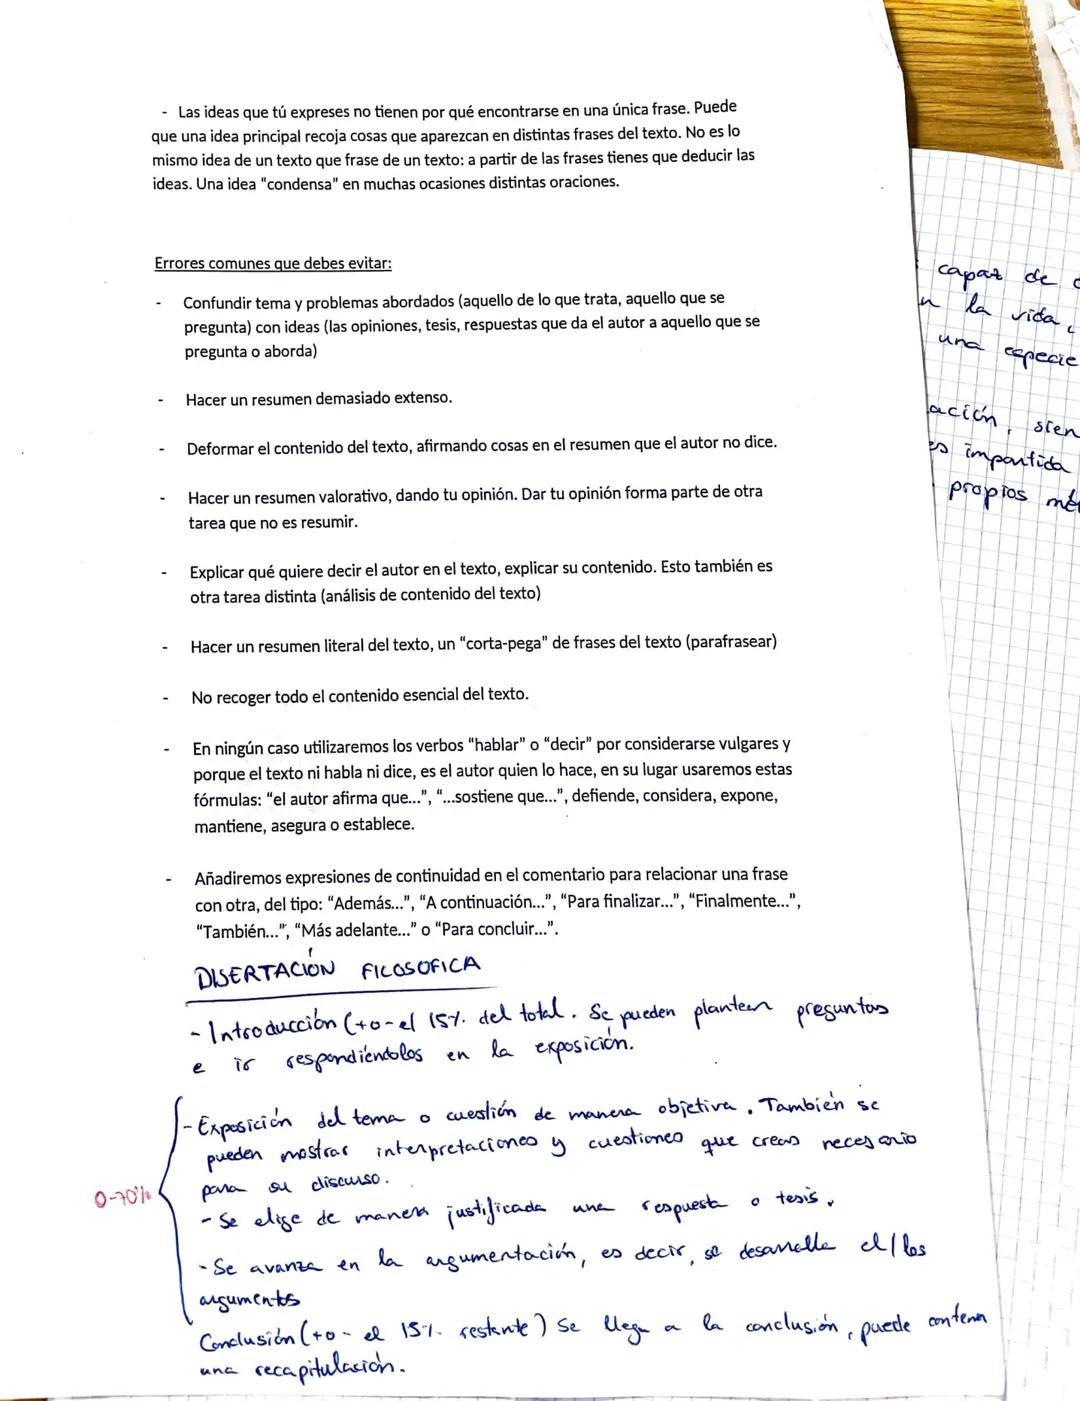 - Las ideas que tú expreses no tienen por qué encontrarse en una única frase. Puede
que una idea principal recoja cosas que aparezcan en distintas frases del texto. No es lo
mismo idea de un texto que frase de un texto: a partir de las frases tienes que deducir las
ideas. Una idea "condensa" en muchas ocasiones distintas oraciones.
Errores comunes que debes evitar:
- Confundir tema y problemas abordados (aquello de lo que trata, aquello que se
pregunta) con ideas (las opiniones, tesis, respuestas que da el autor a aquello que se
pregunta o aborda)
- Hacer un resumen demasiado extenso.
- Deformar el contenido del texto, afirmando cosas en el resumen que el autor no dice.
- Hacer un resumen valorativo, dando tu opinión. Dar tu opinión forma parte de otra
tarea que no es resumir.
- Explicar qué quiere decir el autor en el texto, explicar su contenido. Esto también es
otra tarea distinta (análisis de contenido del texto)
- Hacer un resumen literal del texto, un "corta-pega" de frases del texto (parafrasear)
- No recoger todo el contenido esencial del texto.
- En ningún caso utilizaremos los verbos "hablar" o "decir" por considerarse vulgares y
porque el texto ni habla ni dice, es el autor quien lo hace, en su lugar usaremos estas
fórmulas: "el autor afirma que...", "...sostiene que...", defiende, considera, expone,
mantiene, asegura o establece.
- Añadiremos expresiones de continuidad en el comentario para relacionar una frase
con otra, del tipo: "Además...", "A continuación...", "Para finalizar...", "Finalmente...",
"También...", "Más adelante..." o "Para concluir...".
DISERTACIÓN FILOSOFICA
- Introducción (+o-el 15%. del total. Se pueden plantear preguntas
e ir respondiéndolas en la exposición.
- Exposición del tema o cuestión de manera objetiva. También se
pueden mostrar interpretaciones y cuestiones que creas necesario
para su discurso.
0-70%
- Se elige de manera justificada una respuesta o tesis.
- Se avanza en la argumentación, es decir, se desarrolla el/los
argumentos
Conclusión (+o- el 15%. restante) Se llega a la conclusión, puede contener
una recapitulación.
capaz de
la vida,
una especie
ación, sien
es impartida
propios mé